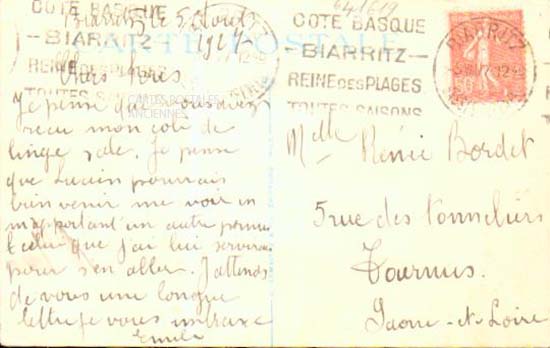 CÔTE BASQUE
- BIARRITZ -
REINE DES PLAGES
TOUTES SAISONS
CARTE POSTALE
Biarritz le 5 Août
1927
Chers
Je pense que vous avez
recu mon colis de
linge sale. Je pense
que Lucien pourrais
bien venir me voir en
m'apportant un autre permis
celui que j'ai lui servira
pour s'en aller. J'attends
de vous une longue
lettre je vous embrasse
Emile
CARTES POSTALES
ANCIENNES
641619
CÔTE BASQUE
- BIARRITZ -
REINE DES PLAGES
TOUTES SAISONS
BIARRITZ
50
Melle Rénée Bordet
5 rue des Tonneliers
Tournus.
Saone-et-Loire